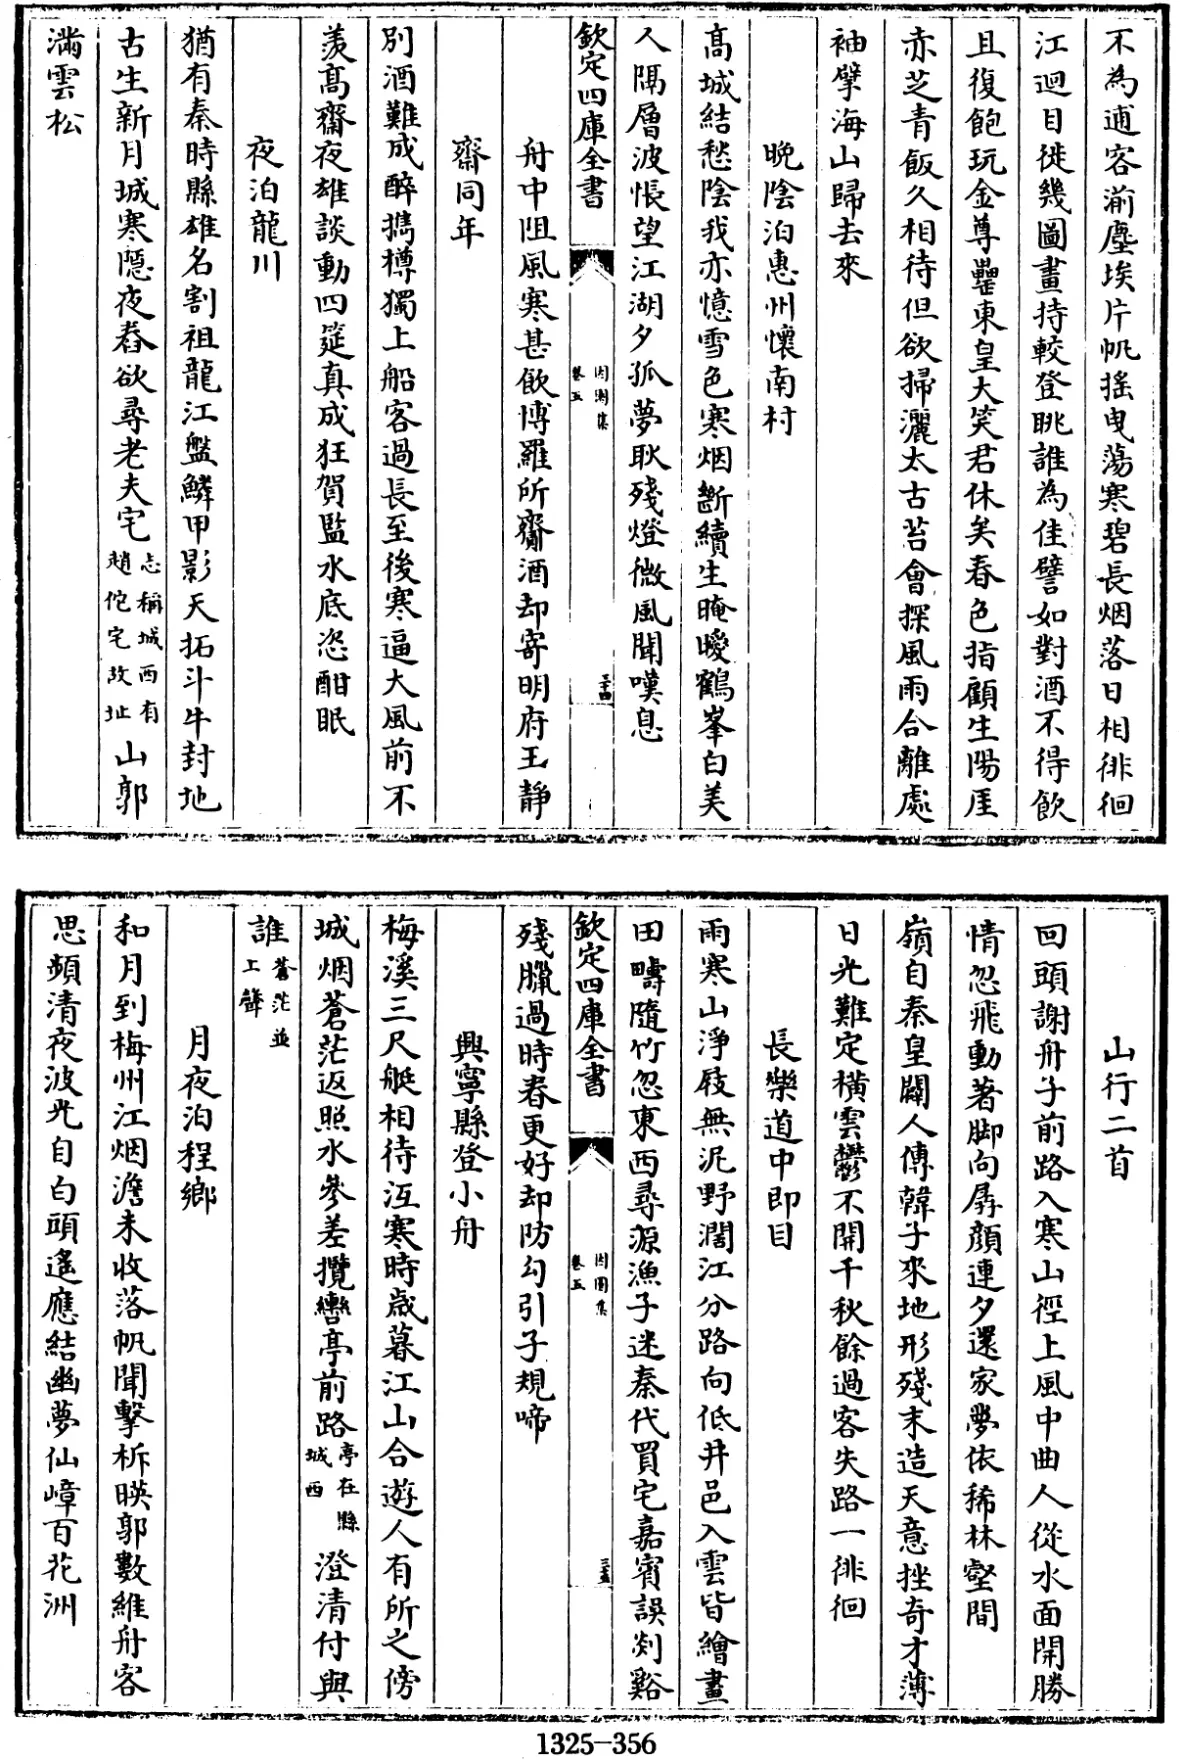 不為逋客湔塵埃片帆搖曳蕩寒碧長烟落日相徘徊
江迴目徙幾圖畫持較登眺誰為佳譬如對酒不得飲
且復飽玩金尊罍東皇大笑君休矣春色指顧生陽厓
赤芝青飯久相待但欲掃灑太古苔會探風雨合離處
袖擘海山歸去來
晚陰泊惠州懷南村
高城結愁陰我亦憶雪色寒烟斷續生晻曖鶴峯白美
人隔層波悵望江湖夕孤夢耿殘燈微風聞嘆息
欽定四庫全書
因園集
卷五
三十四
舟中阻風寒甚飲博羅所齎酒却寄明府王靜
齋同年
別酒難成醉攜樽獨上船客過長至後寒逼大風前不
羨髙齋夜雄談動四筵真成狂賀監水底恣酣眠
夜泊龍川
猶有秦時縣雄名割祖龍江盤鱗甲影天拓斗牛封地
古生新月城寒隠夜舂欲尋老夫宅志稱城西有趙佗宅故址山郭
滿雲松
山行二首
回頭謝舟子前路入寒山徑上風中曲人從水面開勝
情忽飛動著脚向孱顏連夕還家夢依稀林壑間
嶺自秦皇闢人傳韓子來地形殘末造天意挫奇才薄
日光難定橫雲鬱不開千秋餘過客失路一徘徊
長樂道中即目
雨寒山淨屐無泥野濶江分路向低井邑入雲皆繪畫
田疇隨竹忽東西尋源漁子迷秦代買宅嘉賓誤剡谿
欽定四庫全書
因園集
卷五
三十五
殘臘過時春更好却防勾引子規啼
興寧縣登小舟
梅溪三尺艇相待沍寒時歲暮江山合遊人有所之傍
城烟蒼茫返照水參差攬轡亭前路亭在縣城西澄清付與
誰蒼茫並上聲
月夜泊程鄉
和月到梅州江烟澹未收落帆聞擊柝暎郭數維舟客
思頻清夜波光自白頭遙應結幽夢仙嶂百花洲
1325-356